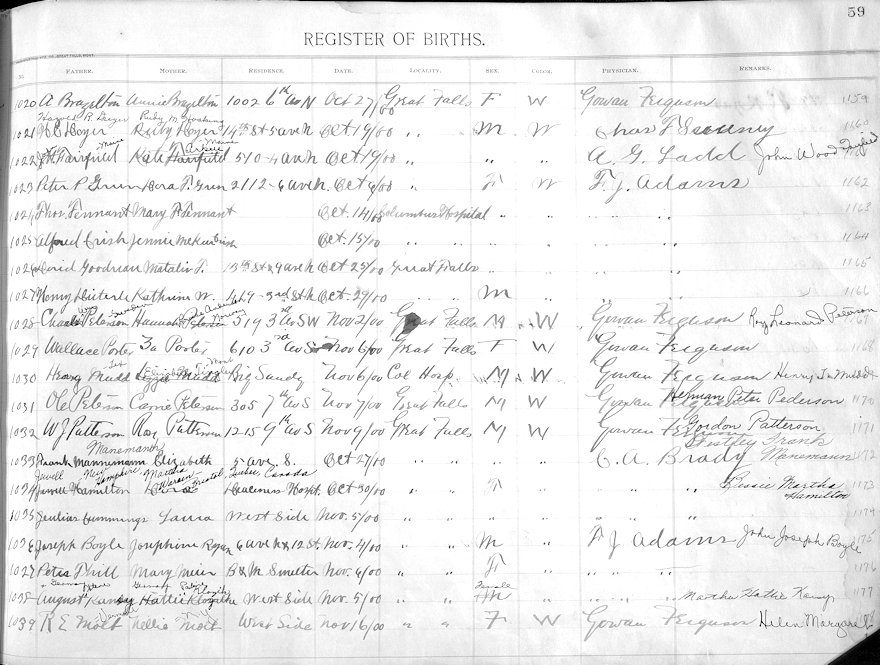 59
REGISTER OF BIRTHS.
NO. FATHER. MOTHER. RESIDENCE. DATE. LOCALITY. SEX. COLOR. PHYSICIAN. REMARKS.
1020 A Brazelton Annie Brazelton 1002 6th Av N Oct 27/00 Great Falls F W Gowan Ferguson 1159
Harvey R. Hoyer Ruby M
1021 H R Hoyer Ruby Hoyer 14th St & 5 ave N. Oct 19/00 " " M W Chas F 1160
Maine Maine
1022 Fairfield Kate Fairfield 510-4 av n Oct 19/00 " " " " A. G. Ladd John Wood
1023 Peter P Grun Cora F. Grun 2112-6 ave N. Oct 6/00 " " F W F. J. Adams 1162
1024 Thos Tennant Mary F. Tennant Oct. 14/00 Columbus Hospital " " " " 1163
1025 Alfred Crish Jennie Crish Oct. 15/00 " " " " " " 1164
1026 David Goodman Matalie F. 13th St & 9 ave N Oct 25/00 Great Falls " " " " 1165
1027 Henry Kathrine W. 419-3rd St N. Oct. 29/00 " " M " " 1166
Sweden Norway
1028 Charles Peterson Hannah Peterson 519 3rd Av SW Nov 2/00 Great Falls M W Gowan Ferguson Roy Leonard Peterson
1029 Wallace Porter Porter 610 3rd Av S Nov 6/00 Great Falls F W Gowan Ferguson 1168
1030 Henry Mudd Lizzie Mudd Big Sandy Nov 6/00 Col Hosp. M W Gowan Ferguson Henry
1031 Ole Peterson Carrie Peterson 305 7th Av S Nov 7/00 Great Falls M W Gowan Ferguson Herman Peter Pederson 1170
1032 W J Patterson Patterson 1215 9th Av S Nov 9/00 Great Falls M W Gowan Ferguson Gordon Patterson 1171
Manemann Westley Frank
1033 Frank Mannemann Elizabeth 5 ave S. Oct 27/00 " " " " C. A. Brady Manemann 1172
Jewell New Hampshire Martha Warren Quebec, Canada
1034 Hamilton Cora Deaconess Hospt. Oct 30/00 " " F " " " Bessie Martha Hamilton 1173
1035 Julius Cummings Laura West Side Nov. 5/00 " " " " " " 1174
1036 Joseph Boyle Josephine Ryan 6 ave N & 12 St. Nov. 4/00 " " M " F J Adams John Joseph Boyle 1175
1037 Peter Thill Mary Meier B & M Smelter Nov. 6/00 " " F " " " 1176
Germany Female
1038 August Kansy Hattie West Side Nov. 5/00 " " M " " " Martha Hattie Kansy 1177
1039 R E Mott Nellie Mott West Side Nov 16/00 " " F W Gowan Ferguson Helen Margaret